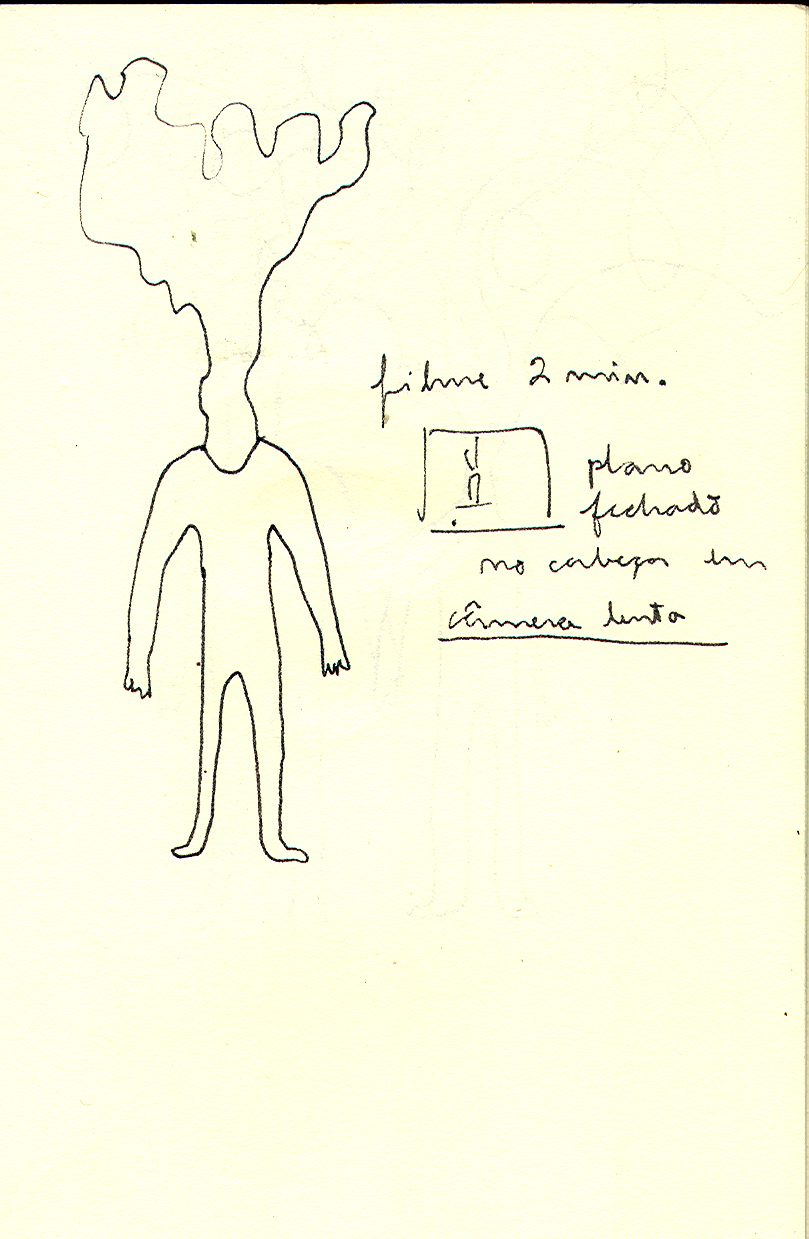 filme 2 min.
plano
fechado
na cabeça em
câmera lenta